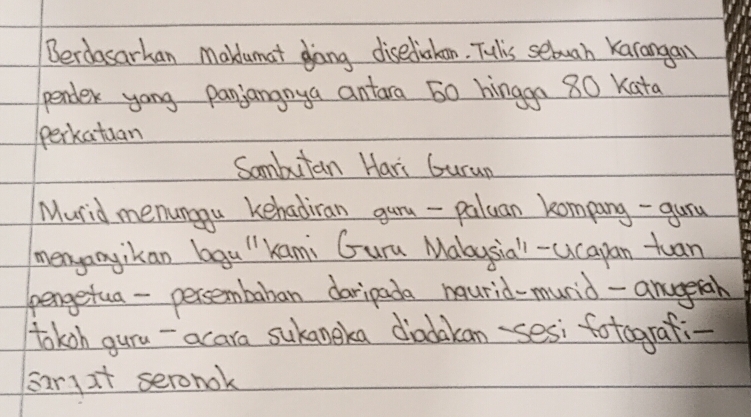 Berdasarkan maklumat yang disediakan. Tulis sebuah karangan
pendek yang panjangnya antara 50 hingga 80 kata
perkataan
Sambutan Hari Gurun
Murid menunggu kehadiran guru - paluan kompang - guru
menyanyikan lagu "kami Guru Malaysia" - ucapan tuan
pengetua - persembahan daripada murid-murid - anugerah
tokoh guru - acara sukaneka diadakan - sesi fotografi -
sangat seronok